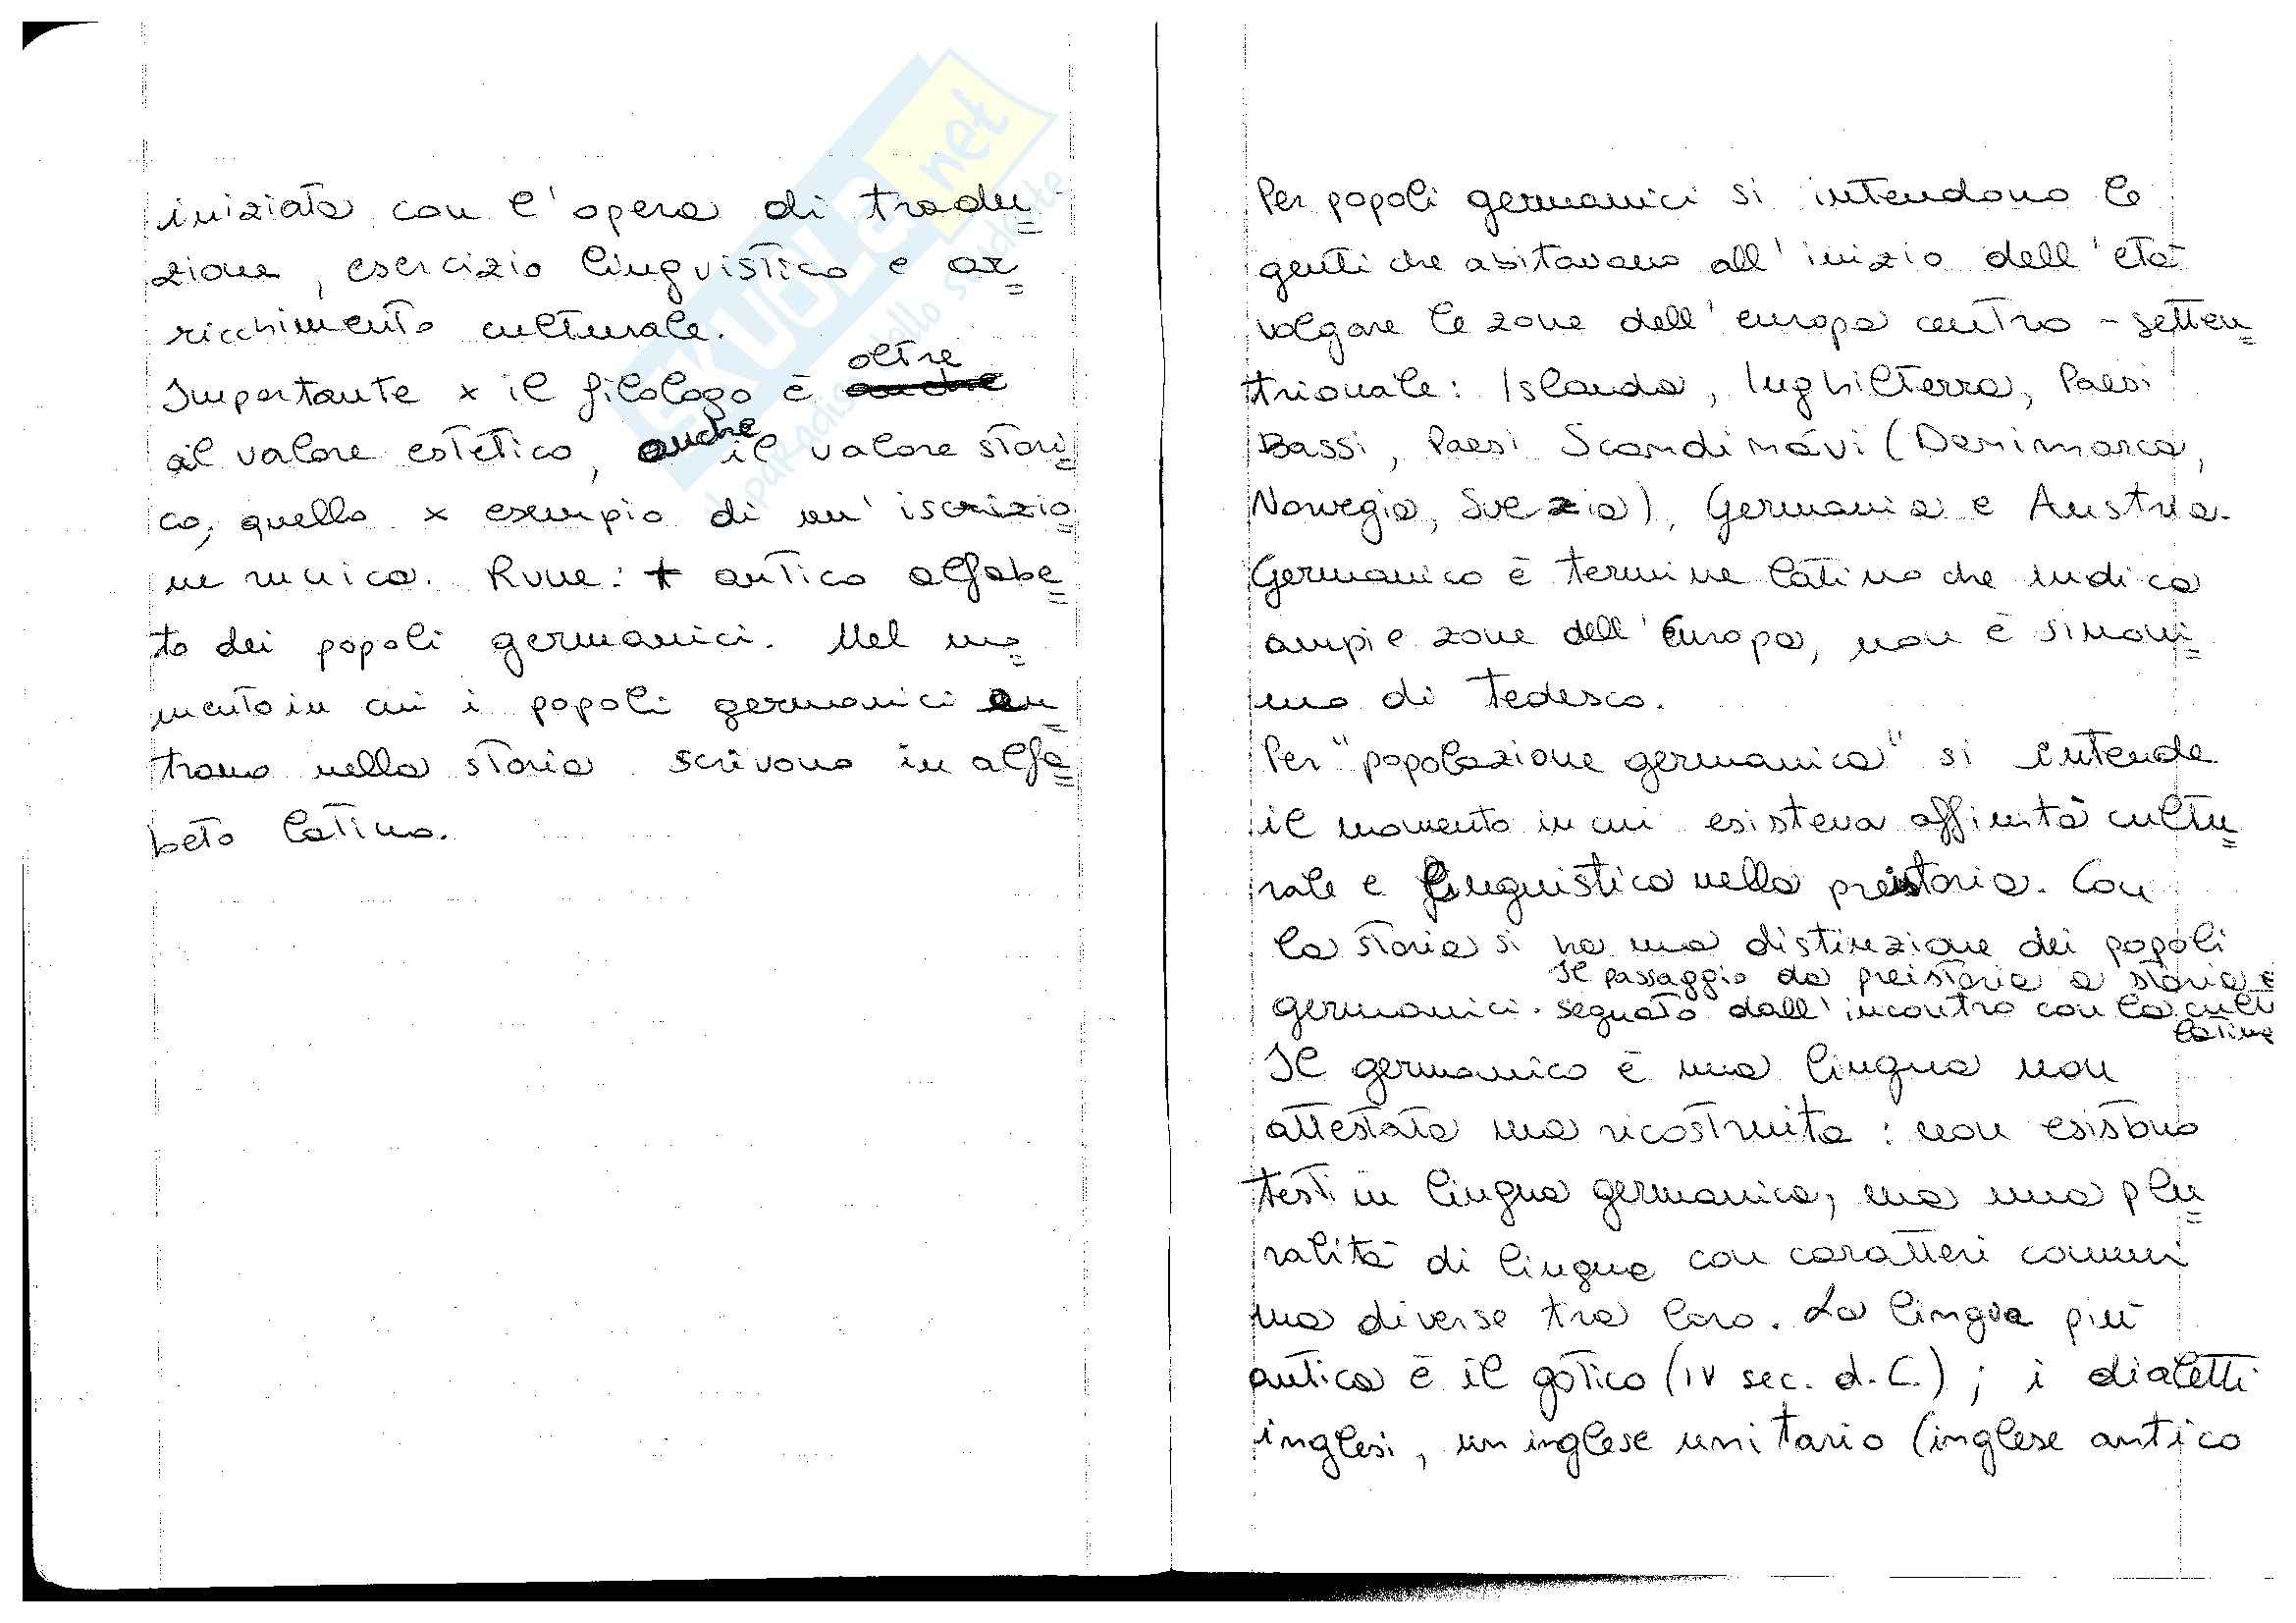 iniziata con l'opera di tradu=
zione, esercizio linguistico e ar=
ricchimento culturale.
Importante x il filologo è oltre
al valore estetico, anche il valore stori=
co, quello x esempio di un'iscrizio=
ne runica. Rune: + antico alfabe=
to dei popoli germanici. Nel mo=
mento in cui i popoli germanici en=
trano nella storia scrivono in alfa=
beto latino.
Per popoli germanici si intendono le
genti che abitavano all'inizio dell'età
volgare le zone dell'europa centro-setten=
trionale: Islanda, Inghilterra, Paesi
Bassi, Paesi Scandinàvi (Danimarca,
Norvegia, Svezia), Germania e Austria.
Germanico è termine latino che indica
ampie zone dell'Europa, non è sinoni=
mo di tedesco.
Per "popolazione germanica" si intende
il momento in cui esisteva affinità cultu=
rale e linguistica nella preistoria. Con
la storia si ha una distinzione dei popoli
germanici. Il passaggio da preistoria a storia è
segnato dall'incontro con la cult
latina
Il germanico è una lingua non
attestata ma ricostruita: non esistono
testi in lingua germanica, ma una plu=
ralità di lingue con caratteri comuni
ma diverse tra loro. La lingua più
antica è il gotico (IV sec. d.C.); i dialetti
inglesi, un inglese unitario (inglese antico
SKUOLA.net